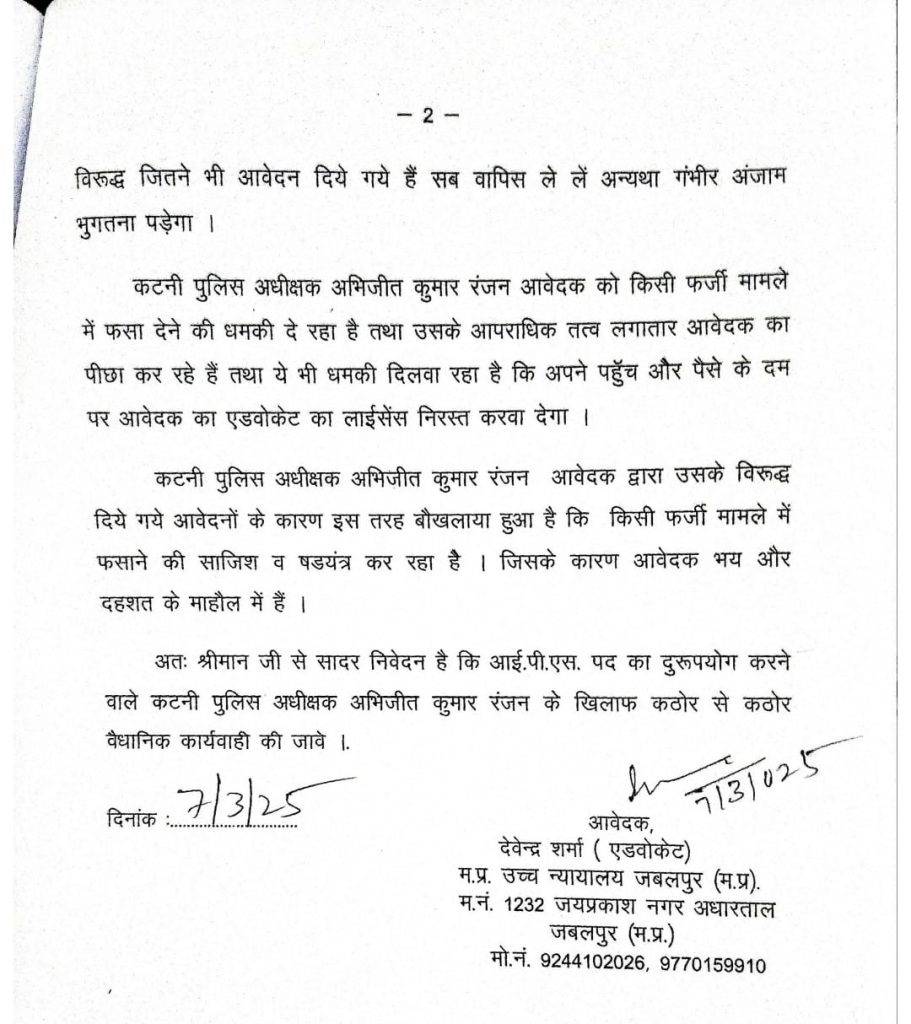 – 2 –
विरूद्ध जितने भी आवेदन दिये गये हैं सब वापिस ले लें अन्यथा गंभीर अंजाम
भुगतना पड़ेगा ।
कटनी पुलिस अधीक्षक अभिजीत कुमार रंजन आवेदक को किसी फर्जी मामले
में फसा देने की धमकी दे रहा है तथा उसके आपराधिक तत्व लगातार आवेदक का
पीछा कर रहे हैं तथा ये भी धमकी दिलवा रहा है कि अपने पहुॅच और पैसे के दम
पर आवेदक का एडवोकेट का लाईसेंस निरस्त करवा देगा ।
कटनी पुलिस अधीक्षक अभिजीत कुमार रंजन आवेदक द्वारा उसके विरूद्ध
दिये गये आवेदनों के कारण इस तरह बौखलाया हुआ है कि किसी फर्जी मामले में
फसाने की साजिश व षडयंत्र कर रहा है । जिसके कारण आवेदक भय और
दहशत के माहौल में हैं ।
अतः श्रीमान जी से सादर निवेदन है कि आई.पी.एस. पद का दुरूपयोग करने
वाले कटनी पुलिस अधीक्षक अभिजीत कुमार रंजन के खिलाफ कठोर से कठोर
वैधानिक कार्यवाही की जावे ।.
दिनांक :. 7/3/25
7/3/025
आवेदक,
देवेन्द्र शर्मा ( एडवोकेट)
म.प्र. उच्च न्यायालय जबलपुर (म.प्र).
म.नं. 1232 जयप्रकाश नगर अधारताल
जबलपुर (म.प्र.)
मो.नं. 9244102026, 9770159910